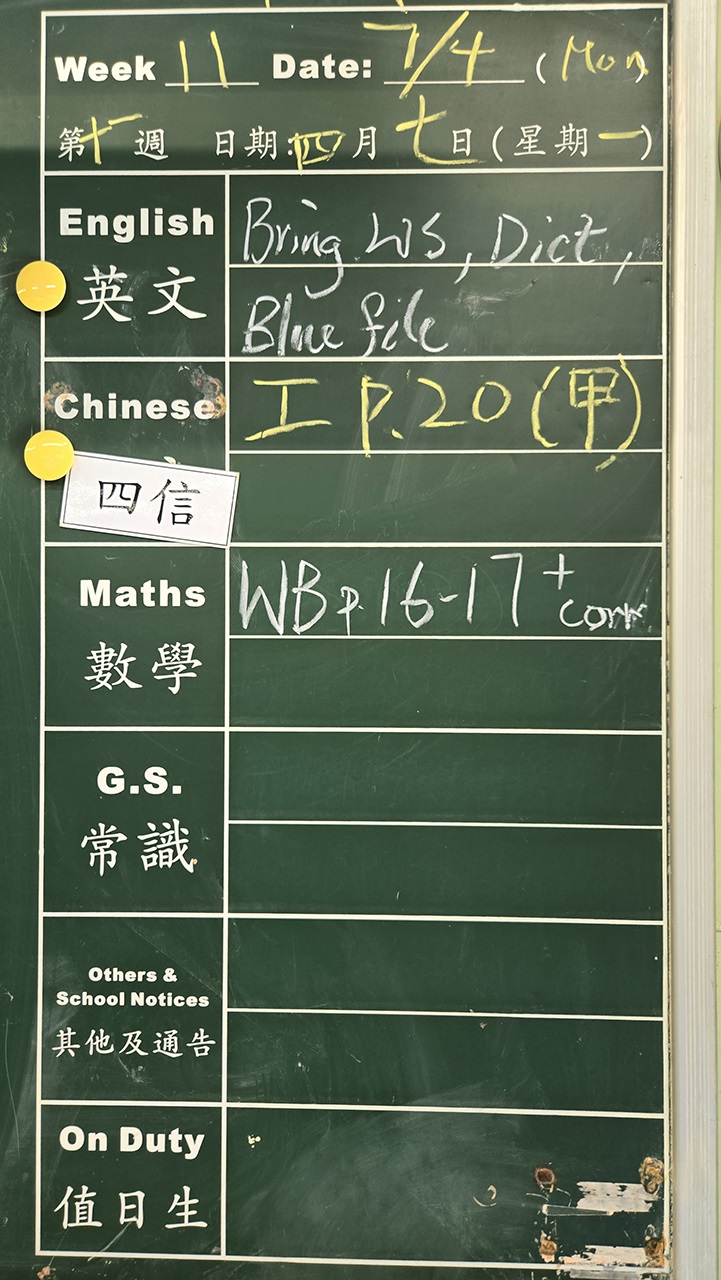 Week 11 Date: 7/4 (Mon)
第十一週 日期:四月七日(星期一)
English
英文
Bring WS, Dict,
Blue file
Chinese
工 P.20 (甲)
四信
Maths
數學
WB p.16-17 + corr
G.S.
常識
Others &
School Notices
其他及通告
On Duty
值日生